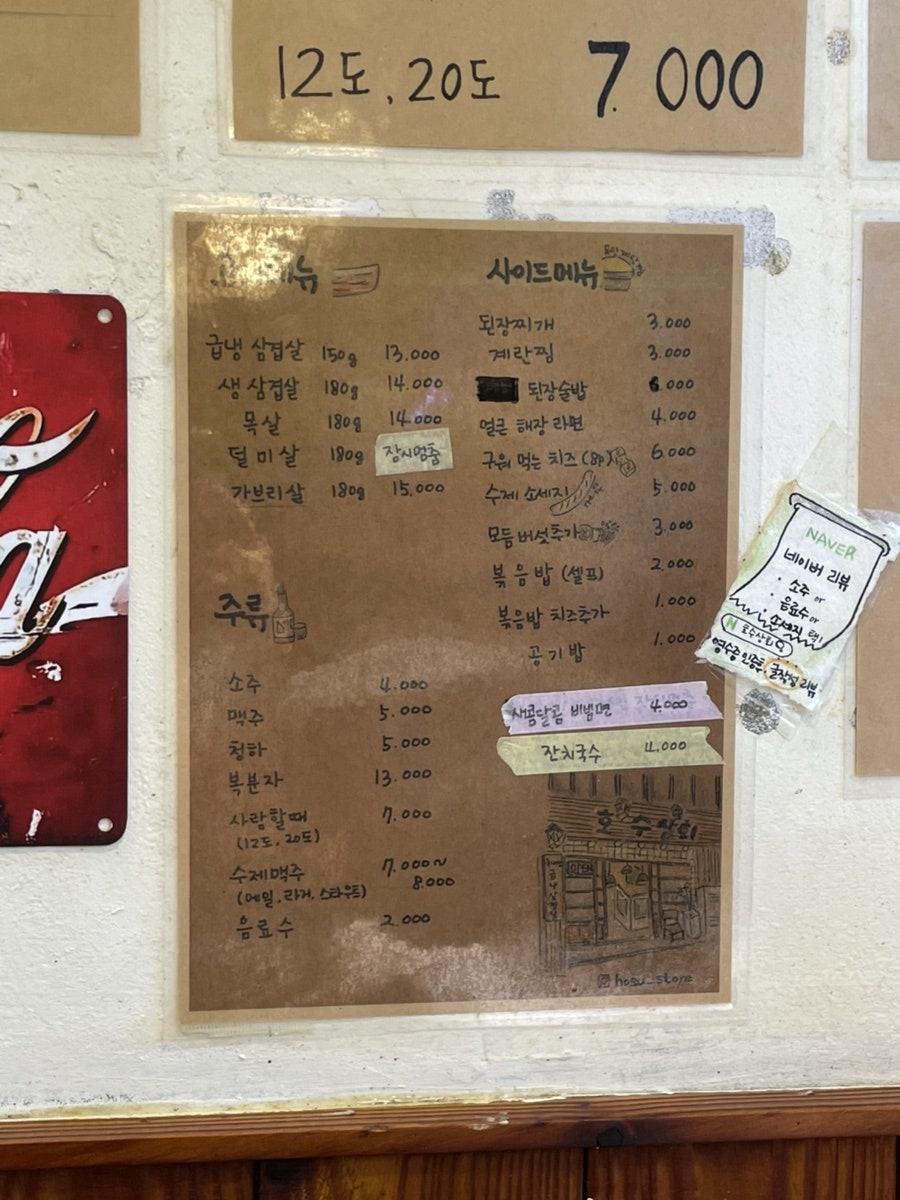 12도, 20도 7.000
메뉴
급냉 삼겹살 150g 13.000
생 삼겹살 180g 14.000
목살 180g 14.000
덜미살 180g 잠시멈춤
가브리살 180g 15.000
주류
소주 4.000
맥주 5.000
청하 5.000
복분자 13.000
사랑할때 7.000
(12도, 20도)
수제맥주 7.000~
8.000
(에일, 라거, 스타우트)
음료수 2.000
사이드메뉴
된장찌개 3.000
계란찜 3.000
된장술밥 6.000
얼큰 해장 라면 4.000
구워 먹는 치즈 (8p) 6.000
수제 소세지 5.000
모듬버섯추가 3.000
볶음밥 (셀프) 2.000
볶음밥 치즈추가 1.000
공기밥 1.000
새콤달콤 비빔면 4.000
잔치국수 4.000
호수상회
OPEN
hosu_store
NAVER
네이버 리뷰
· 소주 or
· 음료수 or
· 소세지 택1
N 호수상회
영수증 인증후 글작성 리뷰